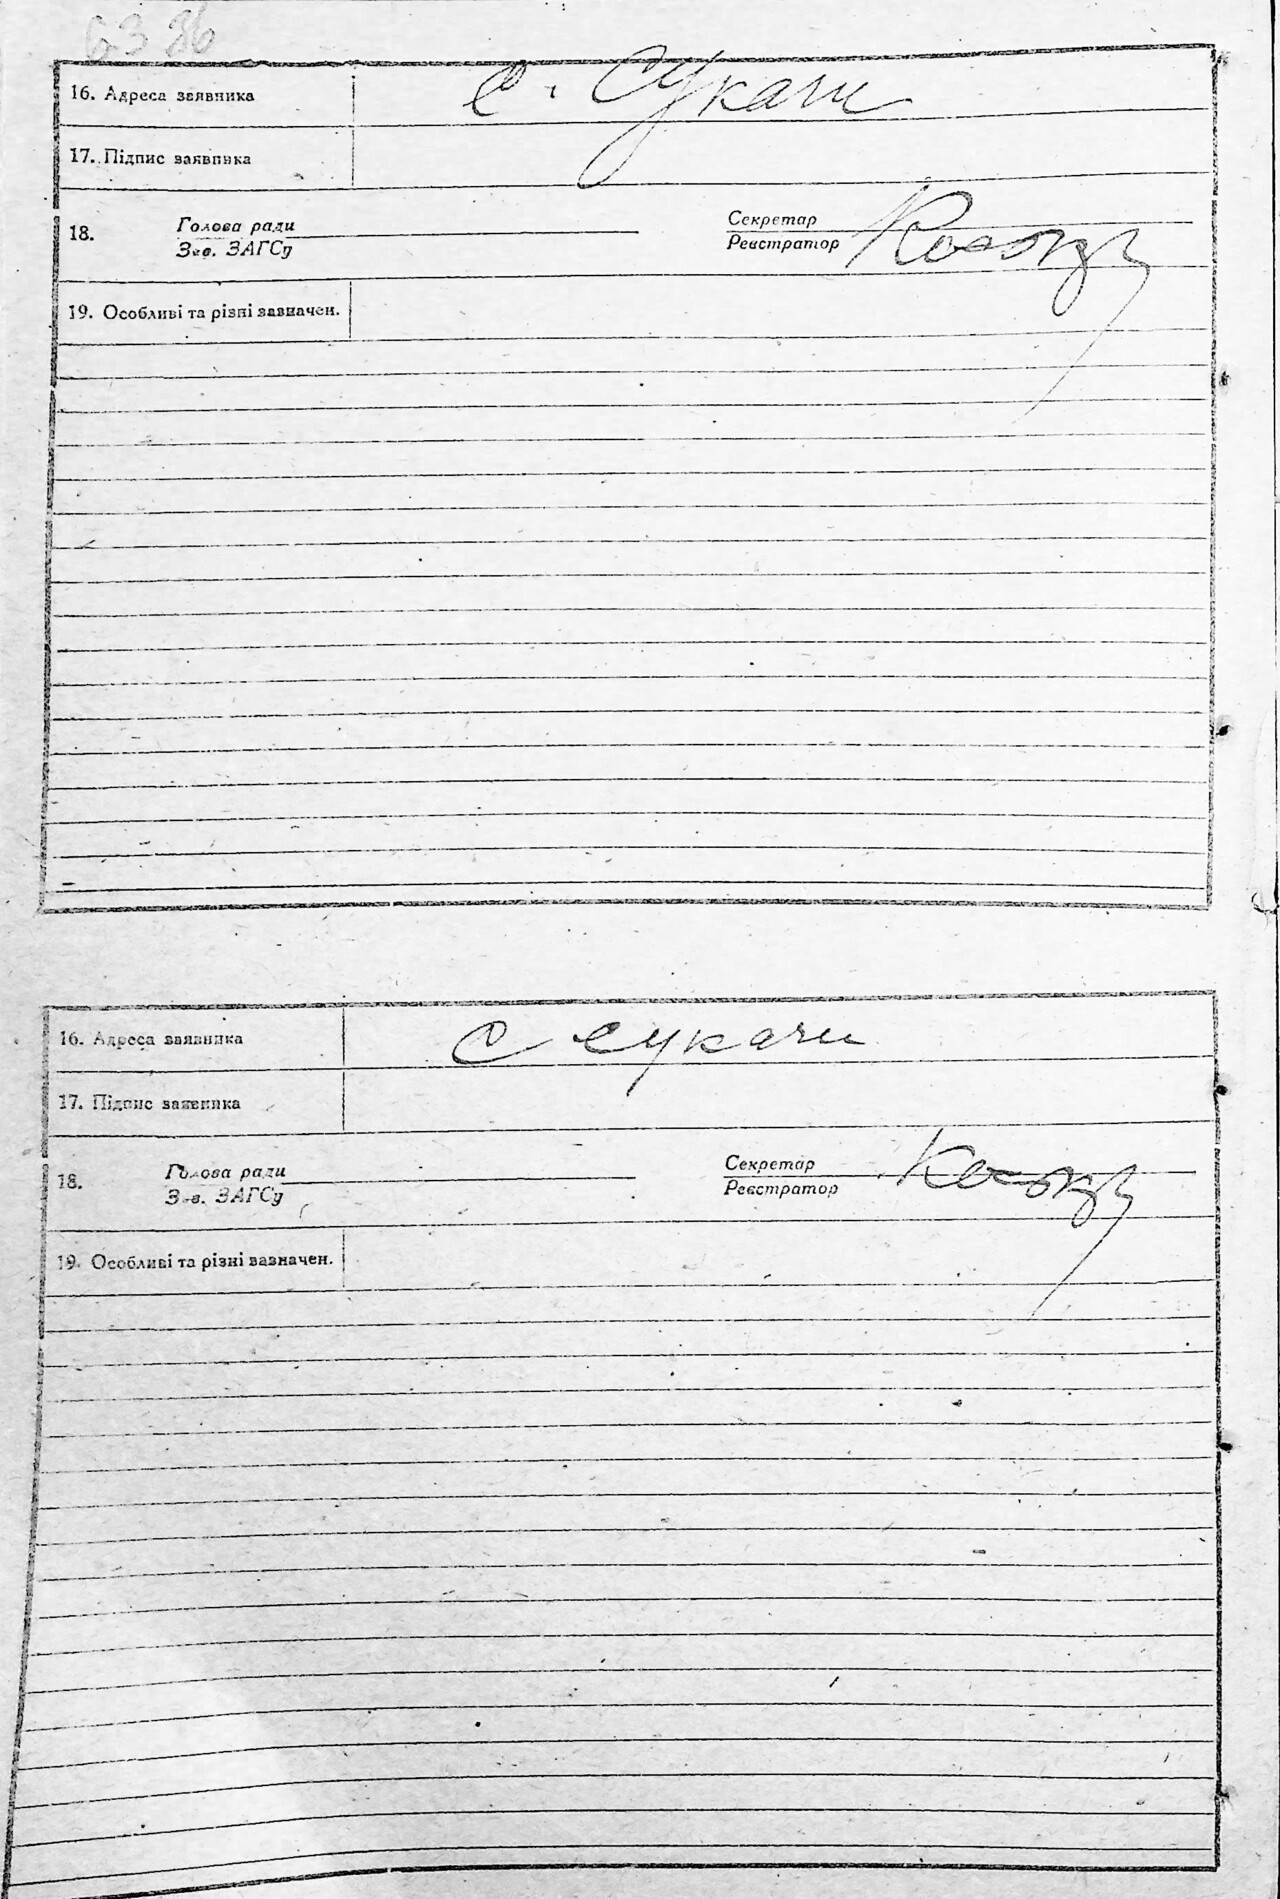 16. Адреса заявника с. Сукачи
17. Підпис заявника
18. Голова ради Секретар
Зав. ЗАГСу Реєстратор
19. Особливі та різні зазначен.
16. Адреса заявника с Сукачи
17. Підпис заявника
18. Голова ради Секретар
Зав. ЗАГСу Реєстратор
19. Особливі та різні зазначен.